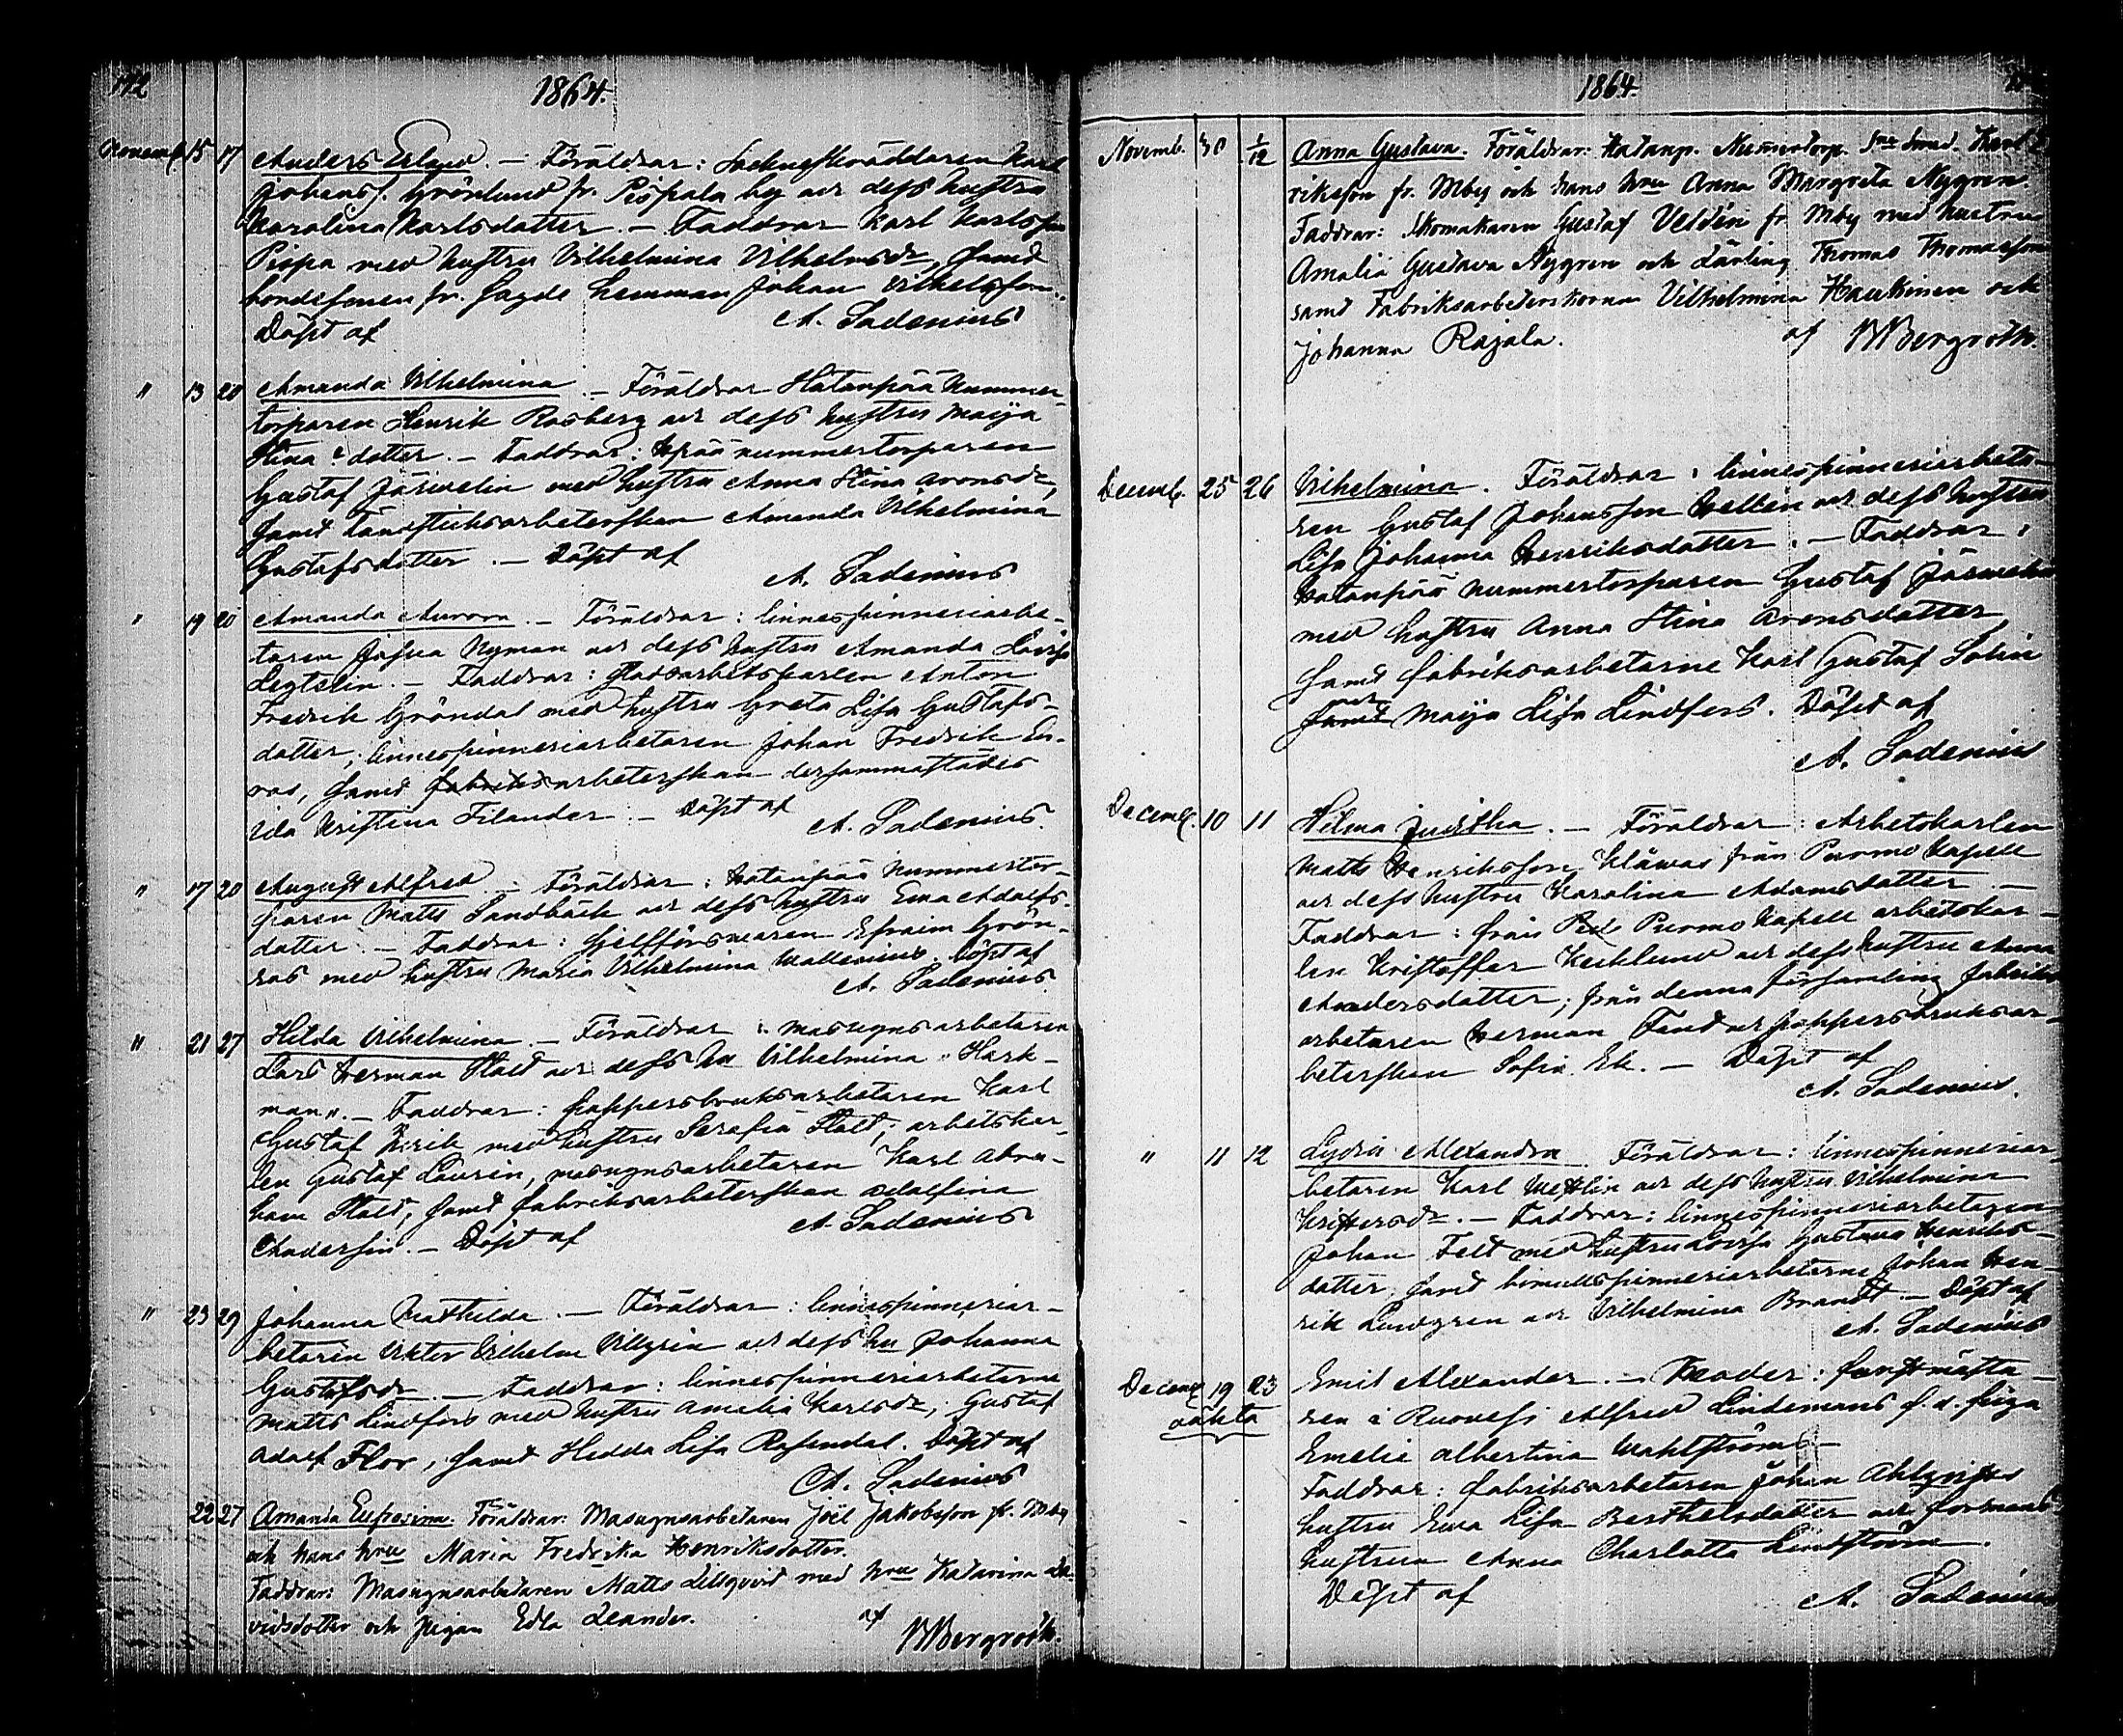 172
1864.
Novemb. 15 17 Anders Erland. — Föräldrar: Sockneskräddaren Karl
Johanss. Grönlund fr. Pispala by och dess hustru
Karolina Karlsdatter. — Faddrar Karl Karlsson
Pispa med hustru Vilhelmina Vilhelmsdr, samt
bondesonen fr. Hemman Johan Vilhelmsson.
Döpt af A. Sadenius
" 13 20 Amanda Vilhelmina. — Föräldrar Hatanpää Nummer-
torparen Henrik Rosberg och dess hustru Maija
Stina datter. — Faddrar: Hpää nummertorparen
Gustaf Järvelin med hustru Anna Stina Aronsdr,
samt Tändsticksarbeterskan Amanda Vilhelmina
Gustafsdatter. — Döpt af
A. Sadenius
" 19 20 Amanda Aurora. — Föräldrar: linnespinneriarbe-
taren Josua Nyman och dess hustru Amanda Lovisa
— Faddrar: stadsarbetskarlen Anton
Fredrik Gröndal med hustru Greta Lisa Gustafs-
datter; linnespinneriarbetaren Johan Fredrik En-
ros, samt fabriksarbeterskan dersammastädes
Ida Kristina Filander. — Döpt af A. Sadenius.
" 17 20 August Alfred. — Föräldrar: Hatanpää Nummertor-
paren Matts Sandbäck och dess hustru Eva Adolfs-
datter. — Faddrar: Sjelfförsvaren Efraim Grön-
ros med hustru Maria Vilhelmina Wallenius. Döpt af
A. Sadenius.
" 21 27 Hilda Vilhelmina. — Föräldrar: masugnsarbetaren
Lars Herman Stolt och dess hu Vilhelmina "Hark-
man". — Faddrar: pappersbruksarbetaren Karl
Gustaf Erik med hustru Serafia Stolt; arbetskar-
len Gustaf Laurin, masugnsarbetaren Karl Abra-
ham Stolt, samt fabriksarbeterskan Adolfina
Andersin. — Döpt af A. Sadenius
" 23 29 Johanna Mathilda. — Föräldrar: linnespinneriar-
betaren Viktor Vilhelm Villgrén och dess hu Johanna
Gustafsdr. — Faddrar: linnespinneriarbetarne
Matts Lindfors med hustru Amalia Karlsdr; Gustaf
Adolf Flor, samt Hedda Lisa Rosendal. Döpt af
A. Sadenius
22 27 Amanda Eufrosina. Föräldrar: Masugnsarbetaren Joël Jakobsson fr. Mby
och hans hru Maria Fredrika Henriksdotter.
Faddrar: Masugnsarbetaren Matts Lillqvist med hru Katarina Da-
vidsdotter och pigan Edla Leander. af
BBergroth.
1864.
Novemb. 30 1/12 Anna Gustava. Föräldrar: Hatanp. Nummertorp. Karl
riksson fr. Mby och hans hru Anna Margreta Nygren.
Faddrar: Skomakaren Gustaf Veldén fr. Mby med hustru
Amalia Gustava Nygren och Lärling Thomas Thomasson
samt Fabriksarbeterskorna Vilhelmina Haukinen och
Johanna Rajala. af BBergroth.
Decemb. 25 26 Vilhelmina. Föräldrar: linnespinneriarbeta-
ren Gustaf Johansson Hellén och dess hustru
Lisa Johanna Henriksdatter. — Faddrar:
Hatanpää nummertorparen Gustaf Järvelin
med hustru Anna Stina Aronsdatter
samt fabriksarbetarne Karl Gustaf Solin
och Maija Lisa Lindfors. Döpt af
A. Sadenius
Decemb. 10 11 Hilma Juditha. — Föräldrar: Arbetskarlen
Matts Henriksson Klåwas från Purmo kapell
och dess hustru Karolina Adamsdatter. —
Faddrar: från Purmo kapell arbetskar-
len Kristoffer Kecklund och dess hustru Anna
Andersdatter; från denna församling fabriks
arbetaren Herman Fand och pappersbruksar-
beterskan Sofia Ek. — Döpt af
A. Sadenius.
" 11 12 Lydia Alexandra. Föräldrar: linnespinneriar-
betaren Karl Westlin och dess hustru Vilhelmina
Kristersdr. — Faddrar: linnespinneriarbetaren
Johan Felt med hustru Lovisa Gustava Henriks-
datter, samt bomullsspinneriarbetarne Johan Hen-
rik Lindgren och Vilhelmina Brandt. — Döpt af
A. Sadenius
Decemb 19 23 Emil Alexander. — Moder: forstmästa-
oäkta ren i Ruovesi Alfred Lindemans f.d. piga
Emelie Albertina Wahlström. —
Faddrar: fabriksarbetaren Johan Ahlgréns
hustru Eva Lisa Berthelsdatter och formans
hustrun Anna Charlotta Lindström.
Döpt af A. Sadenius